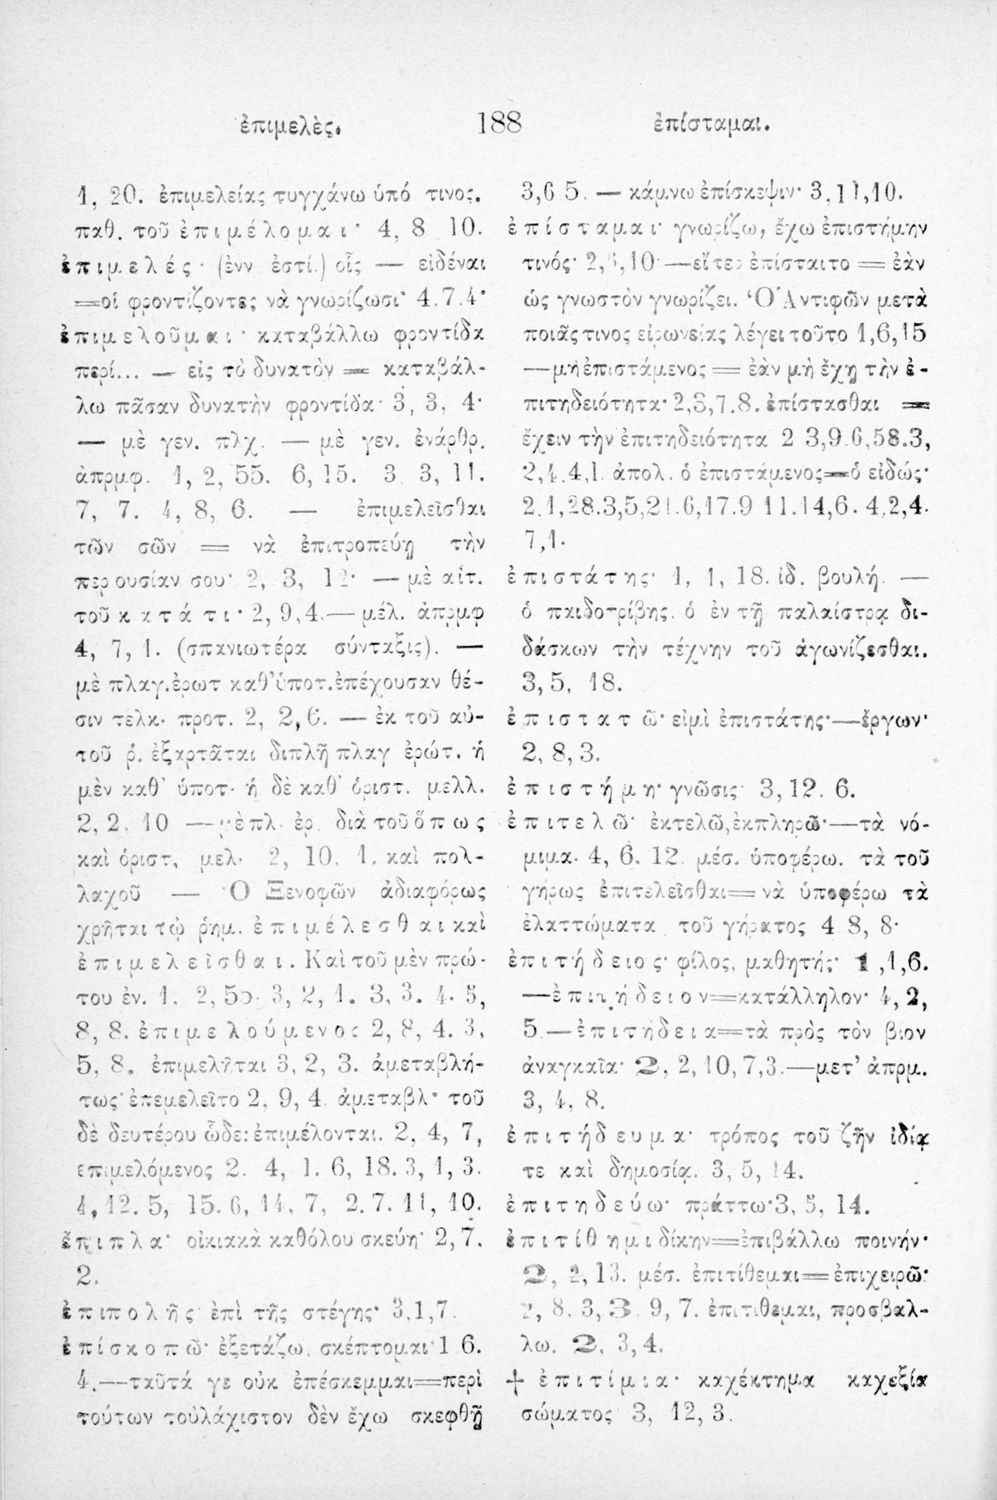 ἐπιμελὲς. 188 ἐπίσταμαι.
1, 20. ἐπιμελείας τυγχάνω ὑπό τινος.
παθ. τοῦ ἐπιμέλομαι· 4, 8 10.
ἐπιμελές· (ἐνν ἐστί.) οἷς — εἰδέναι
=οἱ φροντίζοντες νὰ γνωρίζωσι· 4.7.4·
ἐπιμελοῦμαι· καταβάλλω φροντίδα
περί... — εἰς τὸ δυνατὸν = καταβάλ-
λω πᾶσαν δυνατὴν φροντίδα· 3, 3, 4·
— μὲ γεν. πλχ. — μὲ γεν. ἐνάρθρ.
ἀπρμφ. 1, 2, 55. 6, 15. 3 3, 11.
7, 7. 4, 8, 6. — ἐπιμελεῖσθαι
τῶν σῶν = νὰ ἐπιτροπεύῃ τὴν
περουσίαν σου· 2, 3, 12· — μὲ αἰτ.
τοῦ κατά τι· 2, 9, 4.— μέλ. ἀπρμφ
4, 7, 1. (σπανιωτέρα σύνταξις). —
μὲ πλαγ.ἐρωτ καθ'ὑποτ.ἐπέχουσαν θέ-
σιν τελκ· προτ. 2, 2,6. — ἐκ τοῦ αὐ-
τοῦ ῥ. ἐξαρτᾶται διπλῆ πλαγ ἐρώτ. ἡ
μὲν καθ' ὑποτ· ἡ δὲ καθ' ὁριστ. μελλ.
2, 2, 10 —μὲ πλ· ἐρ διὰ τοῦ ὅπως
καὶ ὁριστ, μελ· 2, 10, 1. καὶ πολ-
λαχοῦ — Ὁ Ξενοφῶν ἀδιαφόρως
χρῆται τῷ ῥημ. ἐπιμέλεσθαι καὶ
ἐπιμελεῖσθαι. Καὶ τοῦ μὲν πρώ-
του ἐν. 1. 2, 55· 3, 2, 1. 3, 3. 4· 5,
8, 8. ἐπιμελούμενος 2, 8, 4. 3,
5, 8. ἐπιμελῆται 3, 2, 3. ἀμεταβλή-
τως· ἐπεμελεῖτο 2, 9, 4. ἀμεταβλ· τοῦ
δὲ δευτέρου ὧδε: ἐπιμέλονται. 2, 4, 7,
επιμελόμενος 2. 4, 1. 6, 18. 3, 1, 3.
4, 12. 5, 15. 6, 14, 7, 2. 7. 11, 10.
ἔπιπλα· οἰκιακὰ καθόλου σκεύη· 2, 7.
2.
ἐπιπολῆς· ἐπὶ τῆς στέγης· 3,1,7.
ἐπίσκοπῶ· ἐξετάζω. σκέπτομαι·1 6.
4.—ταῦτά γε οὐκ ἐπέσκεμμαι=περὶ
τούτων τοὐλάχιστον δὲν ἔχω σκεφθῇ
3,6 5. — κάμνω ἐπίσκεψιν· 3,11,10.
ἐπίσταμαι· γνωρίζω, ἔχω ἐπιστήμην
τινός· 2, ,10·—εἴτε ἐπίσταιτο = ἐὰν
ὡς γνωστὸν γνωρίζει. Ὁ Ἀντιφῶν μετὰ
ποιᾶς τινος εἰρωνείας λέγει τοῦτο 1,6,15
—μὴ ἐπιστάμενος = ἐὰν μὴ ἔχῃ τὴν ἐ-
πιτηδειότητα· 2,3,7.8. ἐπίστασθαι =
ἔχειν τὴν ἐπιτηδειότητα 2 3,9.6,58.3,
2,4.4,1. ἀπολ. ὁ ἐπιστάμενος=ὁ εἰδώς·
2.1,28.3,5,21.6,17.9 11.14,6. 4,2,4.
7,1.
ἐπιστάτης· 1, 1, 18. ἰδ. βουλή. —
ὁ παιδοτρίβης, ὁ ἐν τῇ παλαίστρᾳ δι-
δάσκων τὴν τέχνην τοῦ ἀγωνίζεσθαι.
3, 5, 18.
ἐπιστατῶ· εἰμὶ ἐπιστάτης·—ἔργων·
2, 8, 3.
ἐπιστήμη· γνῶσις· 3, 12. 6.
ἐπιτελῶ· ἐκτελῶ,ἐκπληρῶ·—τὰ νό-
μιμα. 4, 6. 12. μέσ. ὑποφέρω. τὰ τοῦ
γήρως ἐπιτελεῖσθαι=νὰ ὑποφέρω τὰ
ἐλαττώματα τοῦ γήρατος 4 8, 8·
ἐπιτήδειος· φίλος, μαθητής· 1 ,1,6.
—ἐπιτήδειον=κατάλληλον· 4, 2,
5.—ἐπιτήδεια=τὰ πρὸς τὸν βίον
ἀναγκαῖα· 2, 2, 10, 7,3.—μετ' ἀπρμ.
3, 4, 8.
ἐπιτήδευμα· τρόπος τοῦ ζῆν ἰδίᾳ
τε καὶ δημοσίᾳ. 3, 5, 14.
ἐπιτηδεύω· πράττω·3, 5, 14.
ἐπιτίθημι δίκην=ἐπιβάλλω ποινήν·
2, 2, 13. μέσ. ἐπιτίθεμαι=ἐπιχειρῶ·
2, 8. 3, 3. 9, 7. ἐπιτιθεμαι, προσβαλ-
λω. 2. 3, 4.
+ ἐπιτίμια· καχέκτημα καχεξία
σώματος 3, 12, 3.